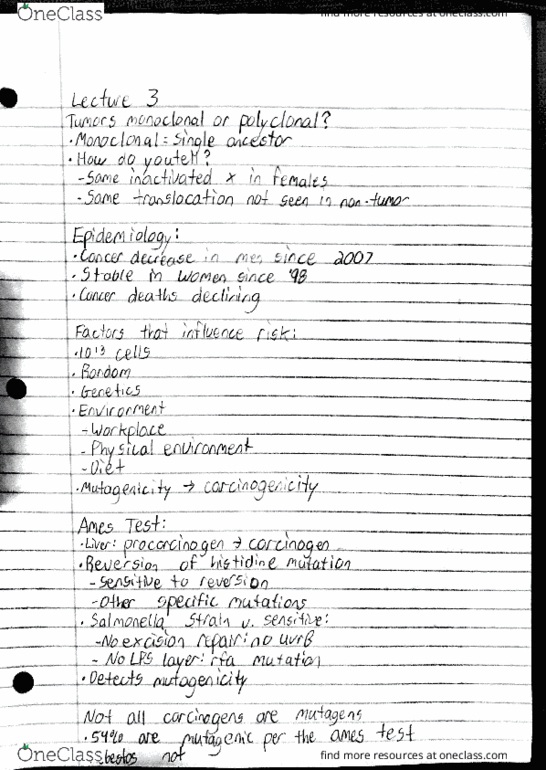 OneClass
find more resources at oneclass.com
Lecture 3
Tumors monoclonal or polyclonal?
• Monoclonal = Single ancestor
• How do you tell?
- Same inactivated x in females
- Same translocation not seen in non-tumor
Epidemiology:
• Cancer decrease in men since 2007
• Stable in women since '98
• Cancer deaths declining
Factors that influence risk:
• 10¹³ cells
• Random
• Genetics
• Enviroment
- Workplace
- Physical environment
- Diet
• Mutagenicity → carcinogenicity
Ames Test:
• Liver: procarcinogen → carcinogen
• Reversion of histidine mutation
- Sensitive to reversion
- Other specific mutations
• Salmonella strain v. sensitive:
- No excision repair: no uvrB
- No LPS layer: rfa mutation
• Detects mutagenicity
Not all carcinogens are mutagens
• 54% are mutagenic per the ames test
OneClass
not
find more resources at oneclass.com